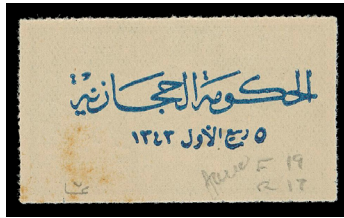 الحكومة الحجازية
٥ ربيع الاول ١٣٤٣
F 19
R 17